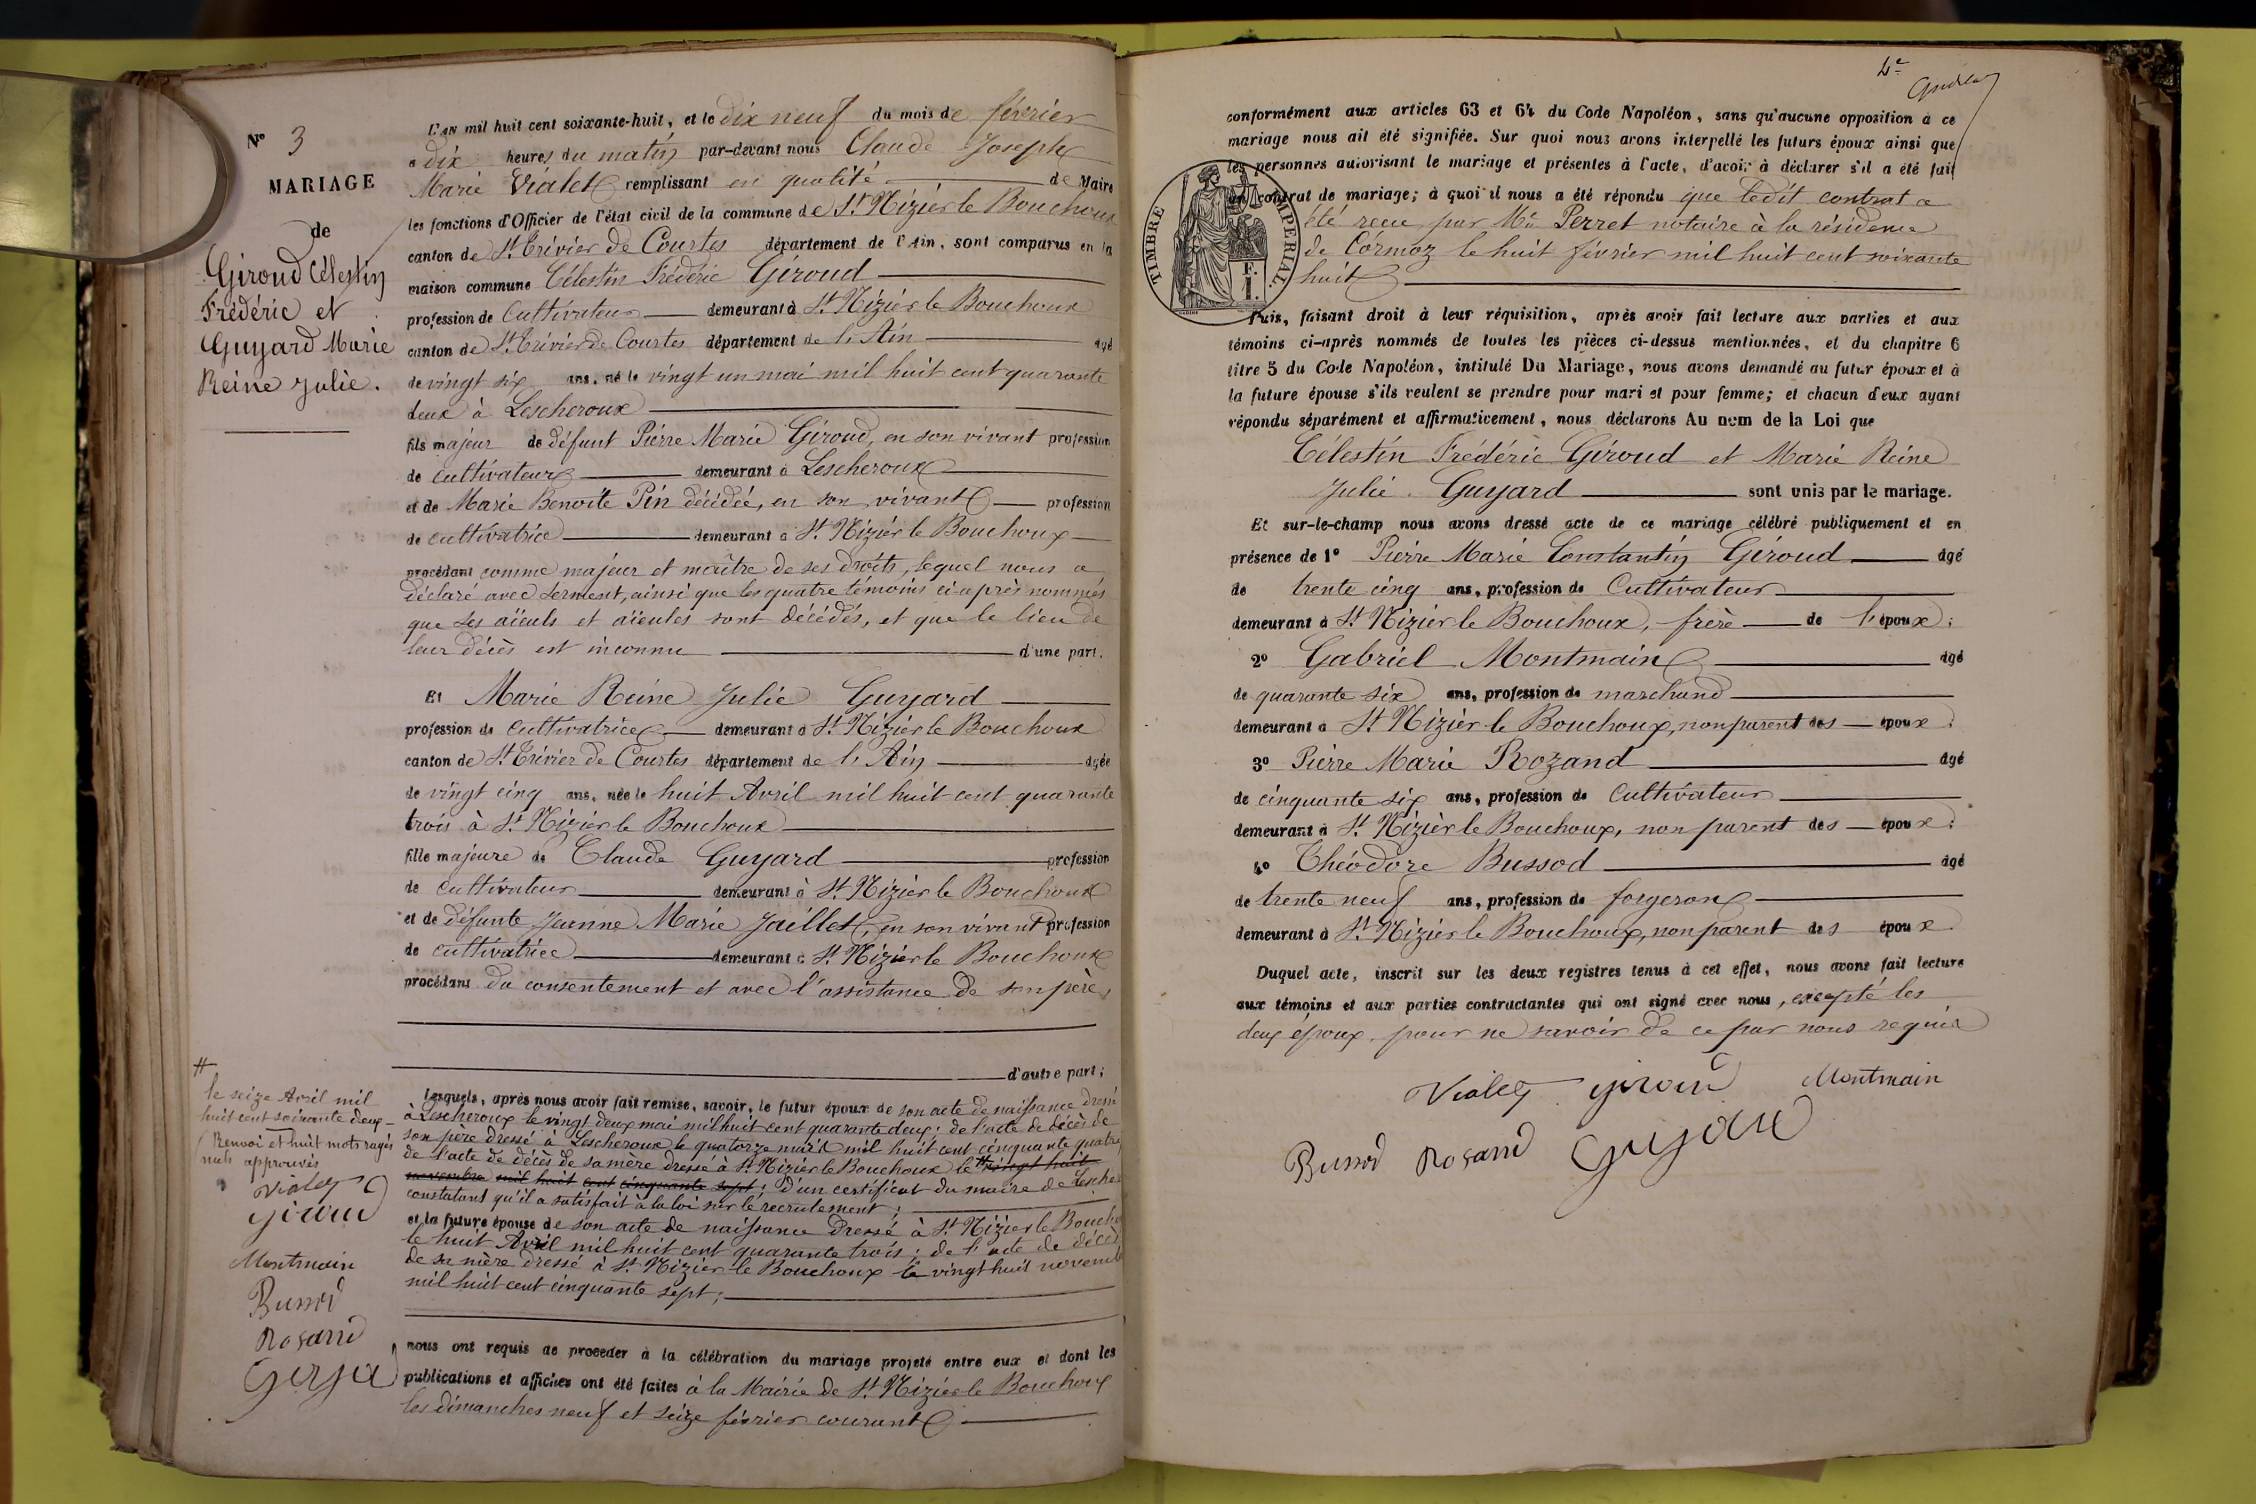 N° 3
MARIAGE
de
Giroud Célestin
Frédéric et
Guyard Marie
Reine Julie.
L'an mil huit cent soixante-huit, et le dix neuf du mois de février
a dix heures du matin par-devant nous Claude Joseph
Marie Vialet remplissant en qualité de Maire
les fonctions d'Officier de l'état civil de la commune de St Nizier le Bouchoux
canton de St Trivier de Courtes département de l'Ain, sont comparus en la
maison commune Célestin Frédéric Giroud
profession de Cultivateur demeurant à St Nizier le Bouchoux
canton de St Trivier de Courtes département de l'Ain âgé
de vingt six ans, né le vingt un mai mil huit cent quarante
deux à Lescheroux
fils majeur de défunt Pierre Marie Giroud, en son vivant profession
de cultivateur demeurant à Lescheroux
et de Marie Benoite Pin décédée, en son vivant profession
de cultivatrice demeurant à St Nizier le Bouchoux
procédant comme majeur et maître de ses droits, lequel nous a
déclaré avec serment, ainsi que les quatre témoins ci-après nommés
que ses aïeuls et aïeules sont décédés, et que le lieu de
leur décès est inconnu d'une part.
Et Marie Reine Julie Guyard
profession de cultivatrice demeurant à St Nizier le Bouchoux
canton de St Trivier de Courtes département de l'Ain âgée
de vingt cinq ans, née le huit Avril mil huit cent quarante
trois à St Nizier le Bouchoux
fille majeure de Claude Guyard profession
de cultivateur demeurant à St Nizier le Bouchoux
et de défunte Jeanne Marie Jaillet, en son vivant profession
de cultivatrice demeurant à St Nizier le Bouchoux
procédant du consentement et avec l'assistance de son père,
d'autre part;
Lesquels, après nous avoir fait remise, savoir, le futur époux de son acte de naissance dressé
à Lescheroux le vingt deux mai mil huit cent quarante deux; de l'acte de décès de
son père dressé à Lescheroux le quatorze mars mil huit cent cinquante quatre
de l'acte de décès de sa mère dressé à St Nizier le Bouchoux le # vingt huit
novembre mil huit cent cinquante sept; d'un certificat du maire de Lesche
constatant qu'il a satisfait à la loi sur le recrutement;
et la future épouse de son acte de naissance dressé à St Nizier le Boucho
le huit Avril mil huit cent quarante trois; de l'acte de décès
de sa mère dressé à St Nizier le Bouchoux le vingt huit novemb
mil huit cent cinquante sept;
nous ont requis de procéder à la célébration du mariage projeté entre eux et dont les
publications et affiches ont été faites à la Mairie de St Nizier le Bouchoux
les dimanches neuf et seize février courant
#
le seize Avril mil
huit cent soixante deux
Renvoi et huit mots rayés
nuls approuvés
Vialet
Giroud
Montmain
Bussod
Rosand
Guyard
4e
conformément aux articles 63 et 64 du Code Napoléon, sans qu'aucune opposition à ce
mariage nous ait été signifiée. Sur quoi nous avons interpellé les futurs époux ainsi que
les personnes autorisant le mariage et présentes à l'acte, d'avoir à déclarer s'il a été fait
un contrat de mariage; à quoi il nous a été répondu que ledit contrat a
été reçu par Me Perret notaire à la résidence
de Cormoz le huit février mil huit cent soixante
huit
TIMBRE IMPERIAL.
E.
1.
Puis, faisant droit à leur réquisition, après avoir fait lecture aux parties et aux
témoins ci-après nommés de toutes les pièces ci-dessus mentionnées, et du chapitre 6
titre 5 du Code Napoléon, intitulé Du Mariage, nous avons demandé au futur époux et à
la future épouse s'ils veulent se prendre pour mari et pour femme; et chacun d'eux ayant
répondu séparément et affirmativement, nous déclarons Au nom de la Loi que
Célestin Frédéric Giroud et Marie Reine
Julie Guyard sont unis par le mariage.
Et sur-le-champ nous avons dressé acte de ce mariage célébré publiquement et en
présence de 1° Pierre Marie Constantin Giroud âgé
de trente cinq ans, profession de Cultivateur
demeurant à St Nizier le Bouchoux, frère de l'époux;
2° Gabriel Montmain âgé
de quarante six ans, profession de marchand
demeurant à St Nizier le Bouchoux, non parent des époux;
3° Pierre Marie Rozand âgé
de cinquante six ans, profession de Cultivateur
demeurant à St Nizier le Bouchoux, non parent des époux;
4° Théodore Bussod âgé
de trente neuf ans, profession de forgeron
demeurant à St Nizier le Bouchoux, non parent des époux
Duquel acte, inscrit sur les deux registres tenus à cet effet, nous avons fait lecture
aux témoins et aux parties contractantes qui ont signé avec nous, excepté les
deux époux pour ne savoir de ce par nous requis
Vialet Giroud Montmain
Bussod Rosand Guyard